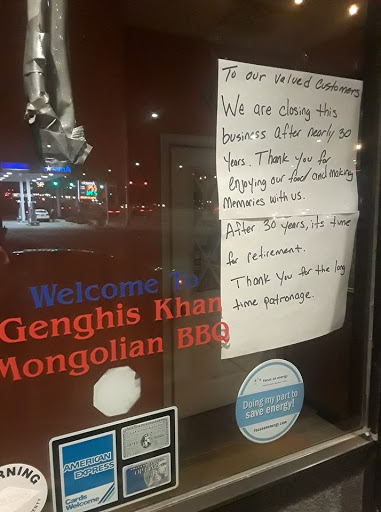 To our valued Customers
We are closing this
business after nearly 30
years. Thank you for
enjoying our food and making
memories with us.
After 30 years, its time
for retirement.
Thank you for the long
time patronage.
Welcome To
Genghis Khan
Mongolian BBQ
focus on energy
Doing my part to
save energy!
focusonenergy.com
AMERICAN
EXPRESS
Cards
Welcome
RNING